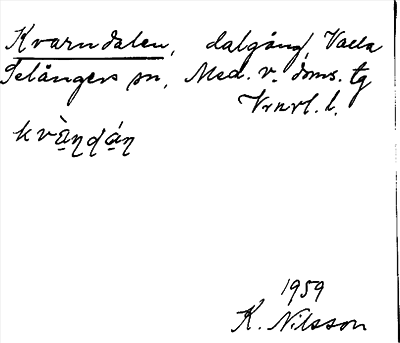 Kvarndalen, dalgång, Valla
Selångers sn, Med. v. doms. tg
Vrnrl. l.
kvὰṇḍáṇ
1959
K. Nilsson